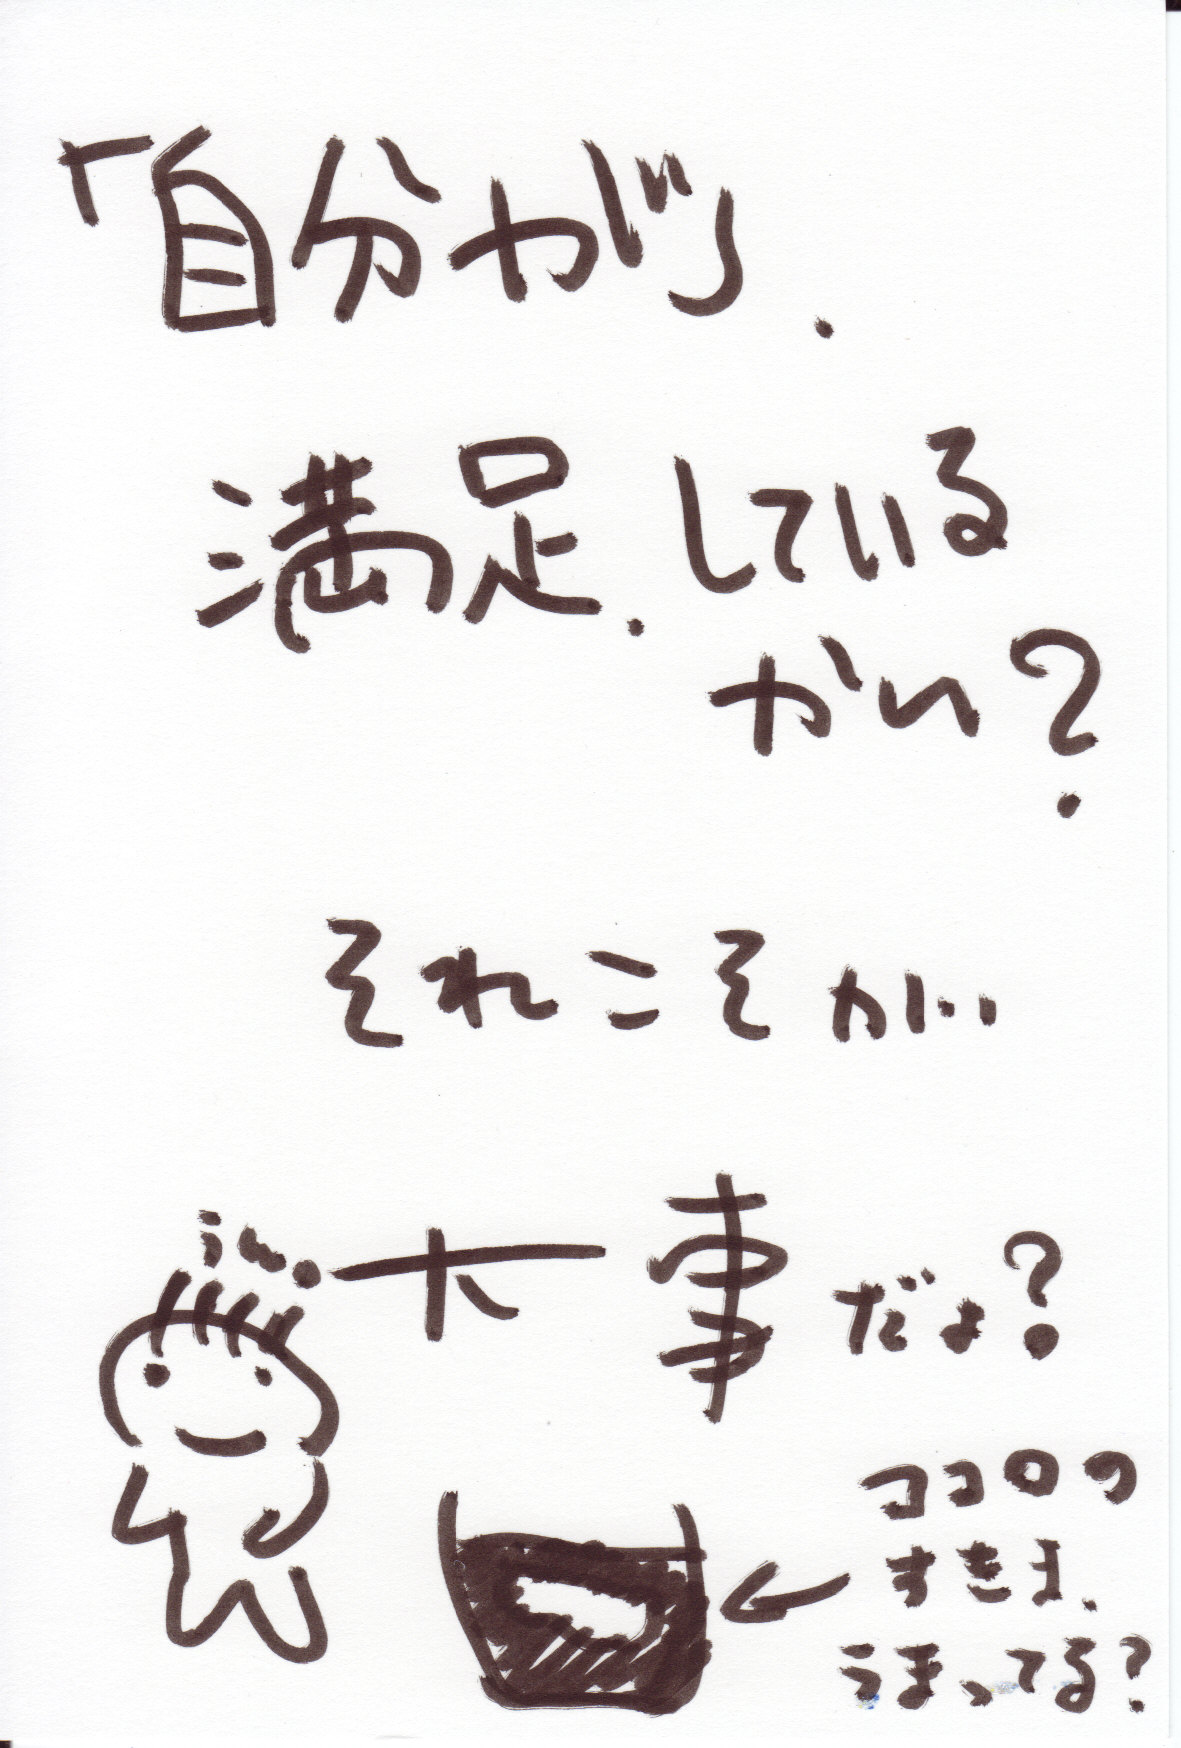 「自分が」.
満足.している
かい?
それこそが...
うん。
大事だよ?
ココロの
すきま.
うまってる?